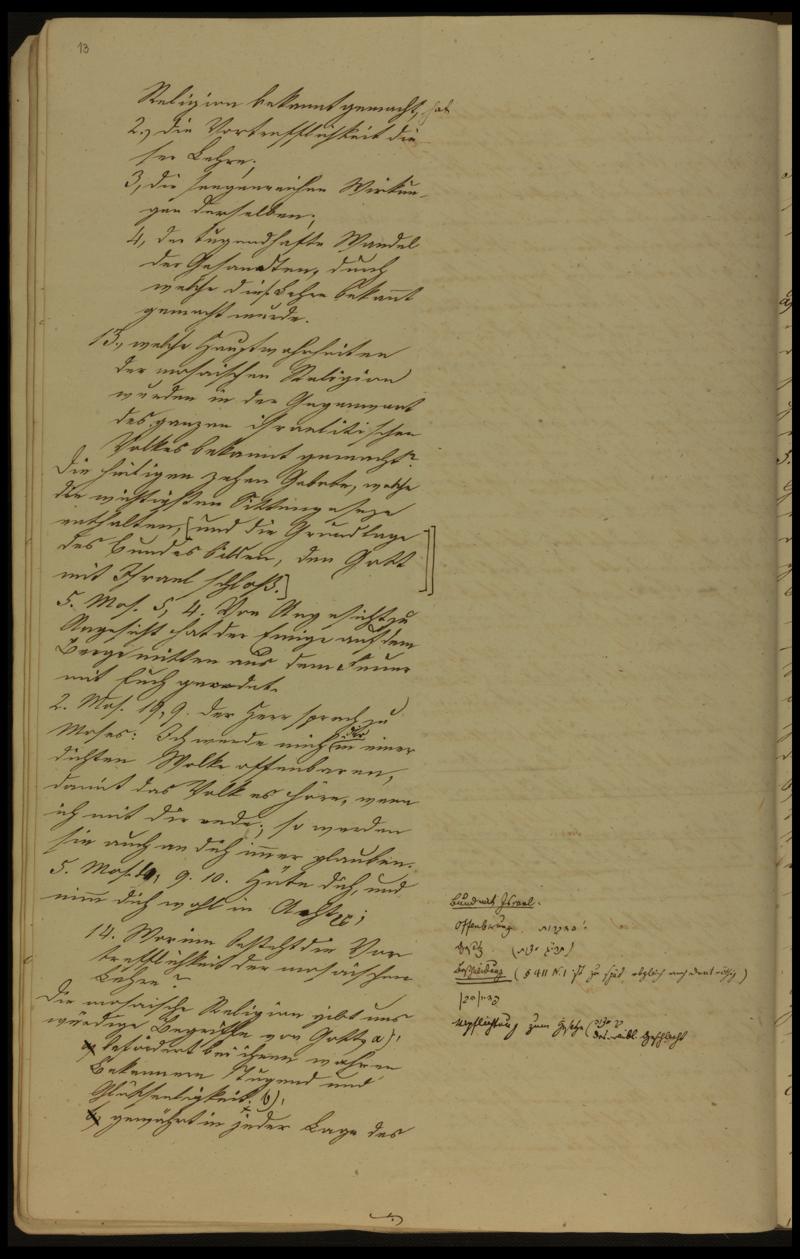 13
Religion bekannt gemacht, hat
2., die Vortrefflichkeit die-
ser Lehre;
3, die seegenreichen Wirkun-
gen derselben;
4, der tugendhafte Wandel
der Gesandten, durch
welche diese Lehre bekannt
gemacht wurde.
13., welche Hauptwahrheiten
der mosaischen Religion
wurden in der Gegenwart
des ganzen israelitischen
Volkes bekannt gemacht?
Die heiligen zehen Gebote, welche
die wichtigsten Sittengeseze
enthalten, [und die Grundlage
des Bundes bilden, den Gott
mit Israel schloß.]
5. Mos. 5, 4. Von Angesicht zu
Angesicht hat der Ewige auf dem
Berge mitten aus dem Feuer
mit Euch geredet.
2. Mos. 19, 9. Der Herr sprach zu
Moses: Ich werde mich dir in einer
dichten Wolke offenbaren,
damit das Volk es höre, wenn
ich mit dir rede; so werden
sie auch an dich immer glauben.
5. Mos. 4, 9. 10. Hüte dich, und
nimm dich wohl in Acht
14. Worinn besteht die Vor-
trefflichkeit der mosaischen
Lehre?
Die mosaische Religion gibt uns
würdige Begriffe von Gott a),
befördert bei ihren wahren
Bekennern Tugend und
Glükseeligkeit b),
gewährt in jeder Lage des
Bund mit Israel.
Offenbarung
Beschneidung (§ 411 N. 1 ist zu spät, obgleich auch
Verpflichtung zum Gesetze
des weibl. Geschlecht